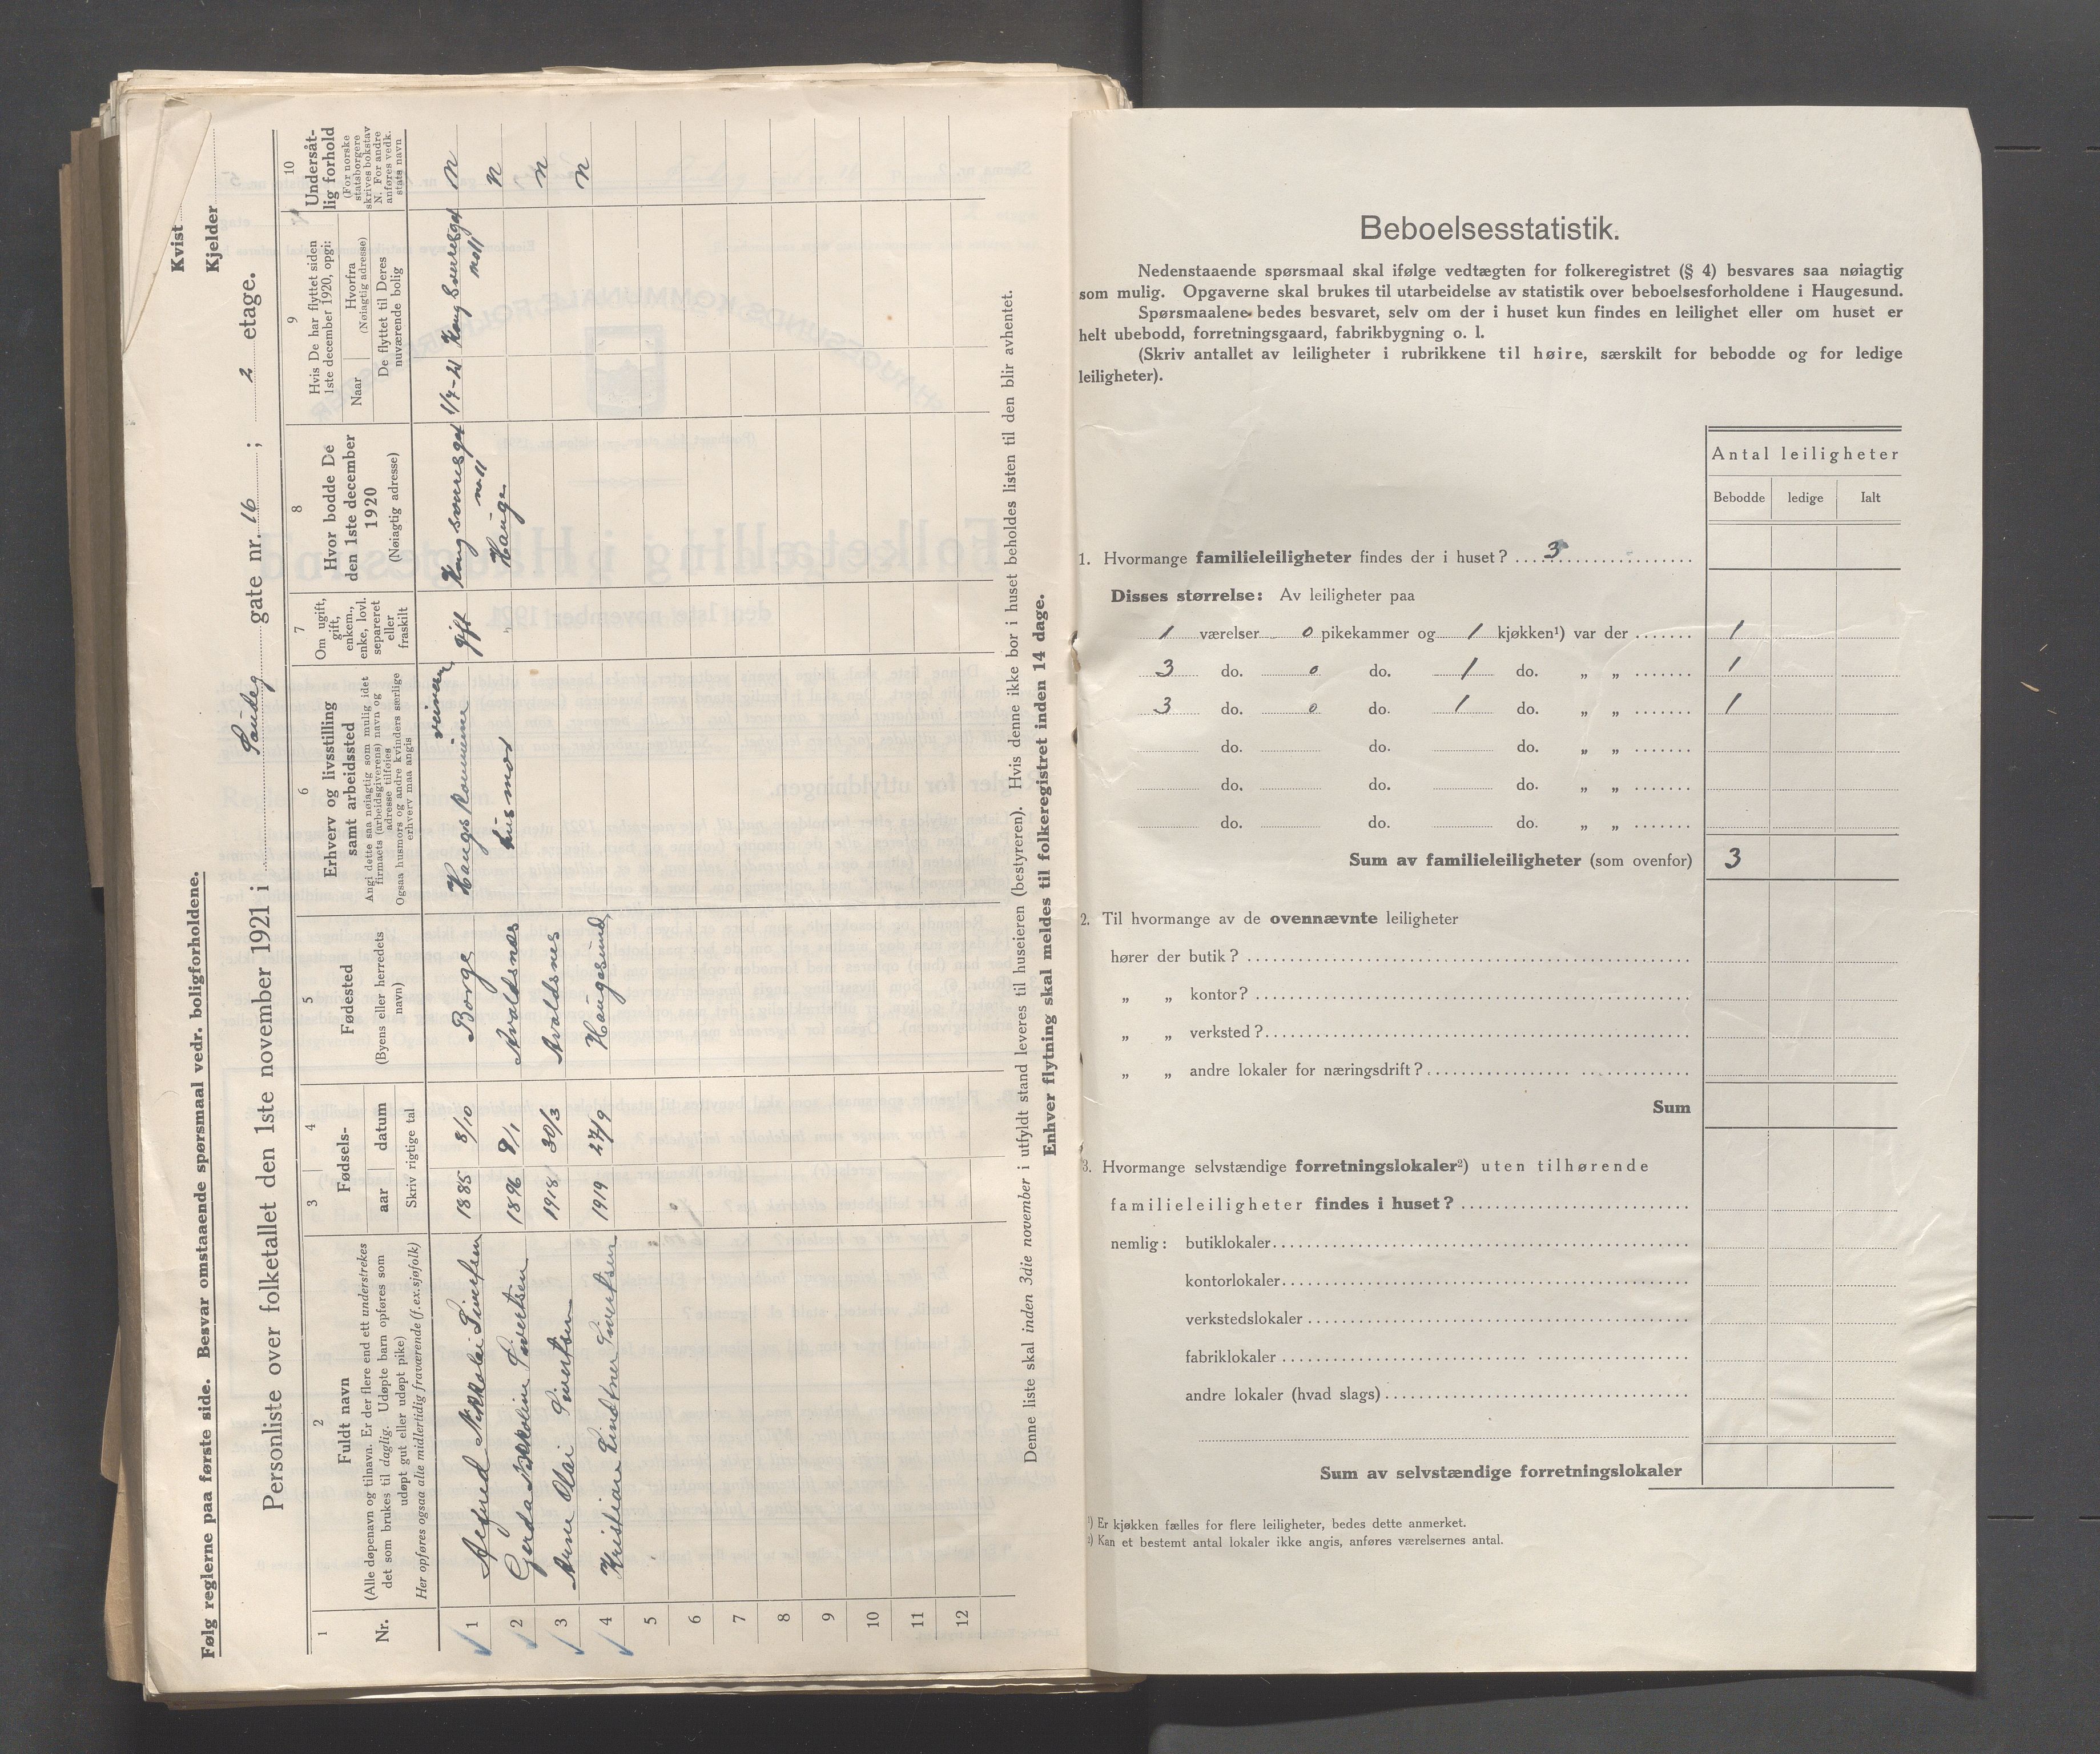 Følg reglerne paa første side. Besvar omstaaende spørsmaal vedr. boligforholdene.
Kvist
Kjelder
Personliste over folketallet den 1ste november 1921 i Sundeg gate nr. 16 ; 2 etage.
1
Nr.
2
Fuldt navn
(Alle døpenavn og tilnavn. Er der flere end ett understrekes
det som brukes til daglig. Udøpte barn opføres som
udøpt gut eller udøpt pike)
Her opføres ogsaa alle midlertidig fraværende (f.ex.sjøfolk)
3
4
Fødsels-
aar
datum
Skriv rigtige tal
5
Fødested
(Byens eller herredets
navn)
6
Erhverv og livsstilling
samt arbeidssted
Angi dette saa nøiagtig som mulig idet
firmaets (arbeidsgiverens) navn og
adresse tilføies
Ogsaa husmors og andre kvinders særlige
erhverv maa angis
7
Om ugift,
gift,
enkem.,
enke, lovl.
separeret
eller
fraskilt
8
Hvor bodde De
den 1ste december
1920
(Nøiagtig adresse)
9
Hvis De har flyttet siden
1ste december 1920, opgi:
Naar
Hvorfra
(Nøiagtig adresse)
De flyttet til Deres
nuværende bolig
10
Undersåt-
lig forhold
(For norske
statsborgere
skrives bokstav
N. For andre
anføres vedk.
stats navn
1 Nikkolai Sivertsen 1885 8/10 Borge Haugs Kommune gift n
2 Gerda Sivertsen 1896 9/1 Avaldsnes husmor Hauge n
3 Arne Olai Sivertsen 1918 30/3 Avaldsnes n
4 Kristian Sivertsen 1919 27/9 Haugesund n
5
6
7
8
9
10
11
12
Denne liste skal inden 3die november i utfyldt stand leveres til huseieren (bestyreren). Hvis denne ikke bor i huset beholdes listen til den blir avhentet.
Enhver flytning skal meldes til folkeregistret inden 14 dage.
Beboelsesstatistik.
Nedenstaaende spørsmaal skal ifølge vedtægten for folkeregistret (§ 4) besvares saa nøiagtig
som mulig. Opgaverne skal brukes til utarbeidelse av statistik over beboelsesforholdene i Haugesund.
Spørsmaalene bedes besvaret, selv om der i huset kun findes en leilighet eller om huset er
helt ubebodd, forretningsgaard, fabrikbygning o. l.
(Skriv antallet av leiligheter i rubrikkene til høire, særskilt for bebodde og for ledige
leiligheter).
Antal leiligheter
Bebodde ledige Ialt
1. Hvormange familieleiligheter findes der i huset? 3
Disses størrelse: Av leiligheter paa
1 værelser 0 pikekammer og 1 kjøkken¹) var der 1
3 do. 0 do. 1 do. „ „ 1
3 do. 0 do. 1 do. „ „ 1
do. do. do. „ „
do. do. do. „ „
do. do. do. „ „
Sum av familieleiligheter (som ovenfor) 3
2. Til hvormange av de ovennævnte leiligheter
hører der butik?
„ „ kontor?
„ „ verksted?
„ „ andre lokaler for næringsdrift?
Sum
3. Hvormange selvstændige forretningslokaler²) uten tilhørende
familieleiligheter findes i huset?
nemlig: butiklokaler
kontorlokaler
verkstedslokaler
fabriklokaler
andre lokaler (hvad slags)
Sum av selvstændige forretningslokaler
¹) Er kjøkken fælles for flere leiligheter, bedes dette anmerket.
²) Kan et bestemt antal lokaler ikke angis, anføres værelsernes antal.